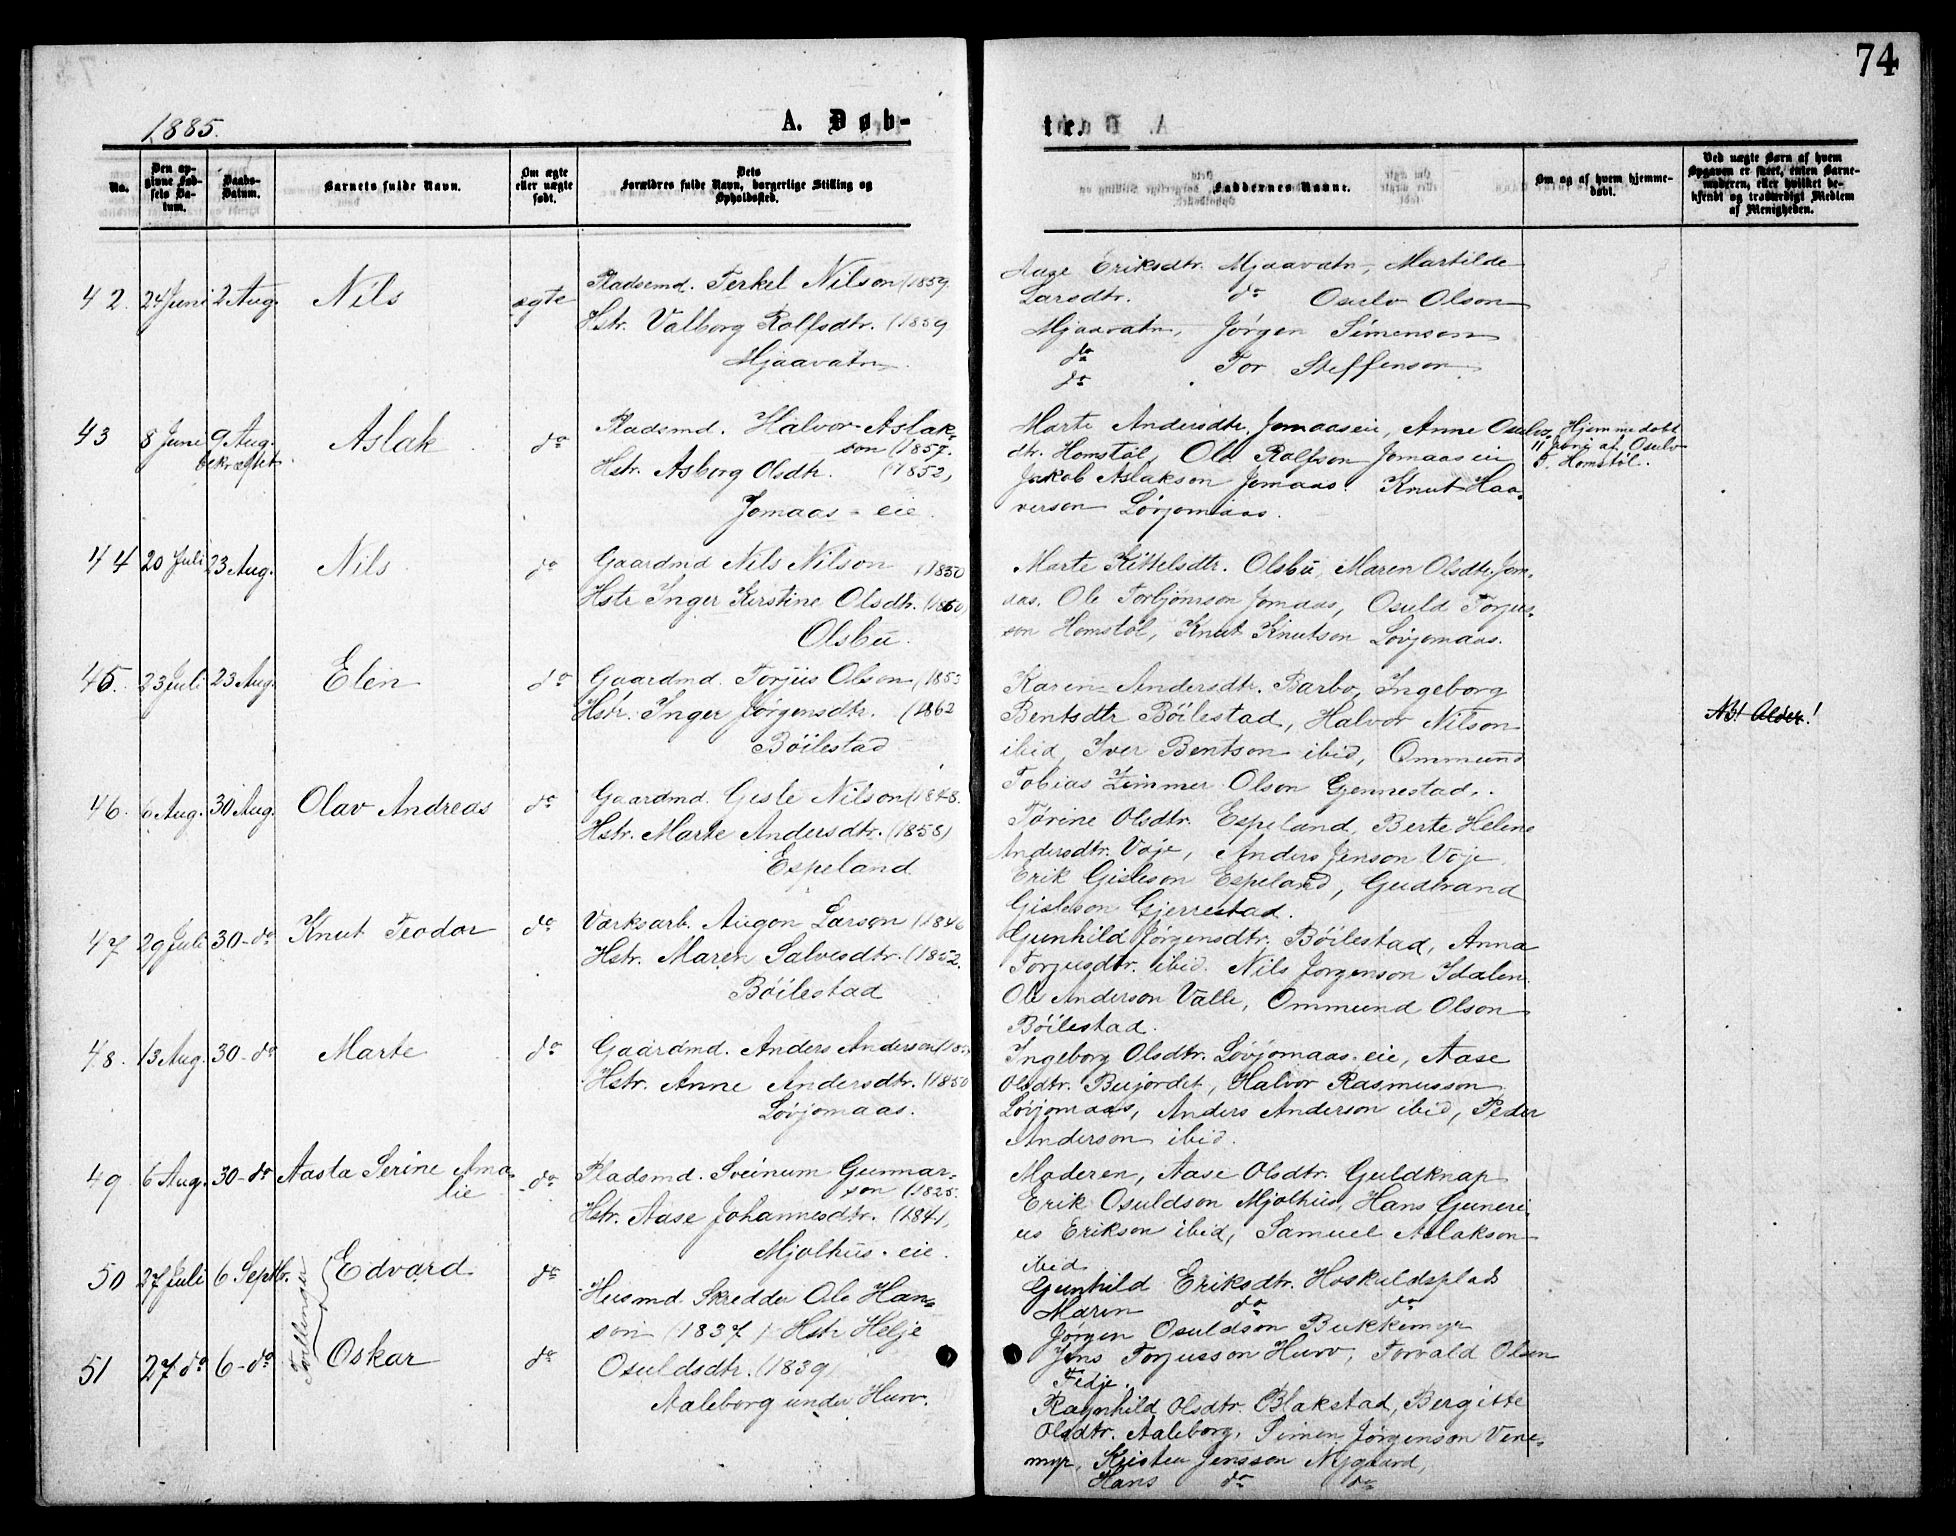 74
1885.
A. Døb-
te.
No.
Den opgivne Fødsels Datum.
Daabs-Datum.
Barnets fulde Navn.
Om ægte eller uægte født.
Dets Forældres fulde Navn, borgerlige Stilling og Opholdssted.
Faddernes Navne.
Om og af hvem hjemmedøbt.
Ved uægte Børn af hvem Opgaven er skeet, enten Barnemoderen, eller hvilket bekjendt og troværdigt Medlem af Menigheden.
42. 24 Juni 2 Aug. Nils ægte Pladsemd. Terkel Nilson (1859
Hstr. Valborg Rolfsdtr. (1859
Mjaavatn
Aase Eriksdtr. Mjaavatn, Martilde
Larsdtr. do Osulv Olson
Mjaavatn, Jørgen Simenson
do Tor Steffenson
do
43 8 Juni 9 Aug. bekræftet Aslak do Pladsmd. Halvor Aslak-
son (1857.
Hstr. Asborg Olsdtr. (1852)
Jomaas-eie.
Marte Andersdtr. Jomaaseie, Anne Osulvs-
dtr. Homstøl, Ole Rolfson Jomaaseie
Jakob Aslakson Jomaas. Knut Haa-
verson Løvjomaas.
Hjemmedøbt
11 Juni af Osulv
T. Homstøl.
44 20 Juli 23 Aug. Nils do Gaardmd Nils Nilson (1850
Hstr Inger Kirstine Olsdtr. (1860)
Olsbu.
Marte Kittelsdtr. Olsbu, Maren Olsdtr. Jom-
aas. Ole Torbjørnson Jomaas, Osuld Torjus-
son Homstøl, Knut Knutson Løvjomaas.
45. 23 Juli 23 Aug. Elen do Gaardmd. Torjus Olson (1853
Hstr. Inger Jørgensdtr. (1862
Bøilestad
Karen Andersdtr. Barbo, Ingeborg
Bentsdtr Bøilestad, Halvor Nilson
ibid, Iver Bentson ibid, Ommund
Tobias Zimmer Olson Gjennestad.
NB! Alder!
46. 6 Aug. 30 Aug. Olav Andreas do Gaardmd. Gisle Nilson (1848.
Hstr. Marte Andersdtr. (1858)
Espeland
Tørine Olsdtr. Espeland, Berte Helene
Andersdtr. Voje, Anders Jenson Voje
Erik Gisleson Espeland, Gudbrand
Gisleson Gjerrestad.
47 29 Juli 30-do Knut Teodor do Værksarb. Augon Larson (1846
Hstr. Maren Salvesdtr. (1852.
Bøilestad
Gunhild Jørgensdtr. Bøilestad, Anna
Torjusdtr. ibid. Nils Jørgenson Idalen
Ole Anderson Valle, Ommund Olson
Bøilestad.
48. 13 Aug. 30-do Marte do Gaardmd. Anders Anderson
Hstr. Anne Andersdtr. (1850
Løvjomaas.
Ingeborg Olsdtr. Løvjomaas-eie, Aase
Olsdtr. Bujordet, Halvor Rasmusson
Løvjomaas, Anders Anderson ibid, Peder
Anderson ibid.
49 6 Aug. 30-do Aasta Serine Ama-
lie do Pladsmd. Sveinum Gunnar-
son (1825.
Hstr. Aase Johannesdtr. (1841,
Mjølhus-eie.
Moderen, Aase Olsdtr. Guldknap
Erik Osuldson Mjølhus, Hans Guneri-
us Erikson ibid, Samuel Aslakson
ibid
50 27 Juli 6 Septbr. Edvard do
Husmd. Skredder Ole Han-
son (1837) Hstr Helje
Osuldsdtr. (1839)
Aaleborg under Hurv.
Gunhild Eriksdtr. Hoskuldsplads
Maren do do
Jørgen Osuldson Bukkemyr
Jens Torjusson Hurv, Torvald Olsen
Tedje.
Tvillinger
51 27 do 6-do Oskar do
Ragnhild Olsdtr. Blakstad, Bergitte
Olsdtr. Aaleborg, Simen Jørgenson Vene-
myr, Kristen Jensson Nygaard,
Hans do do